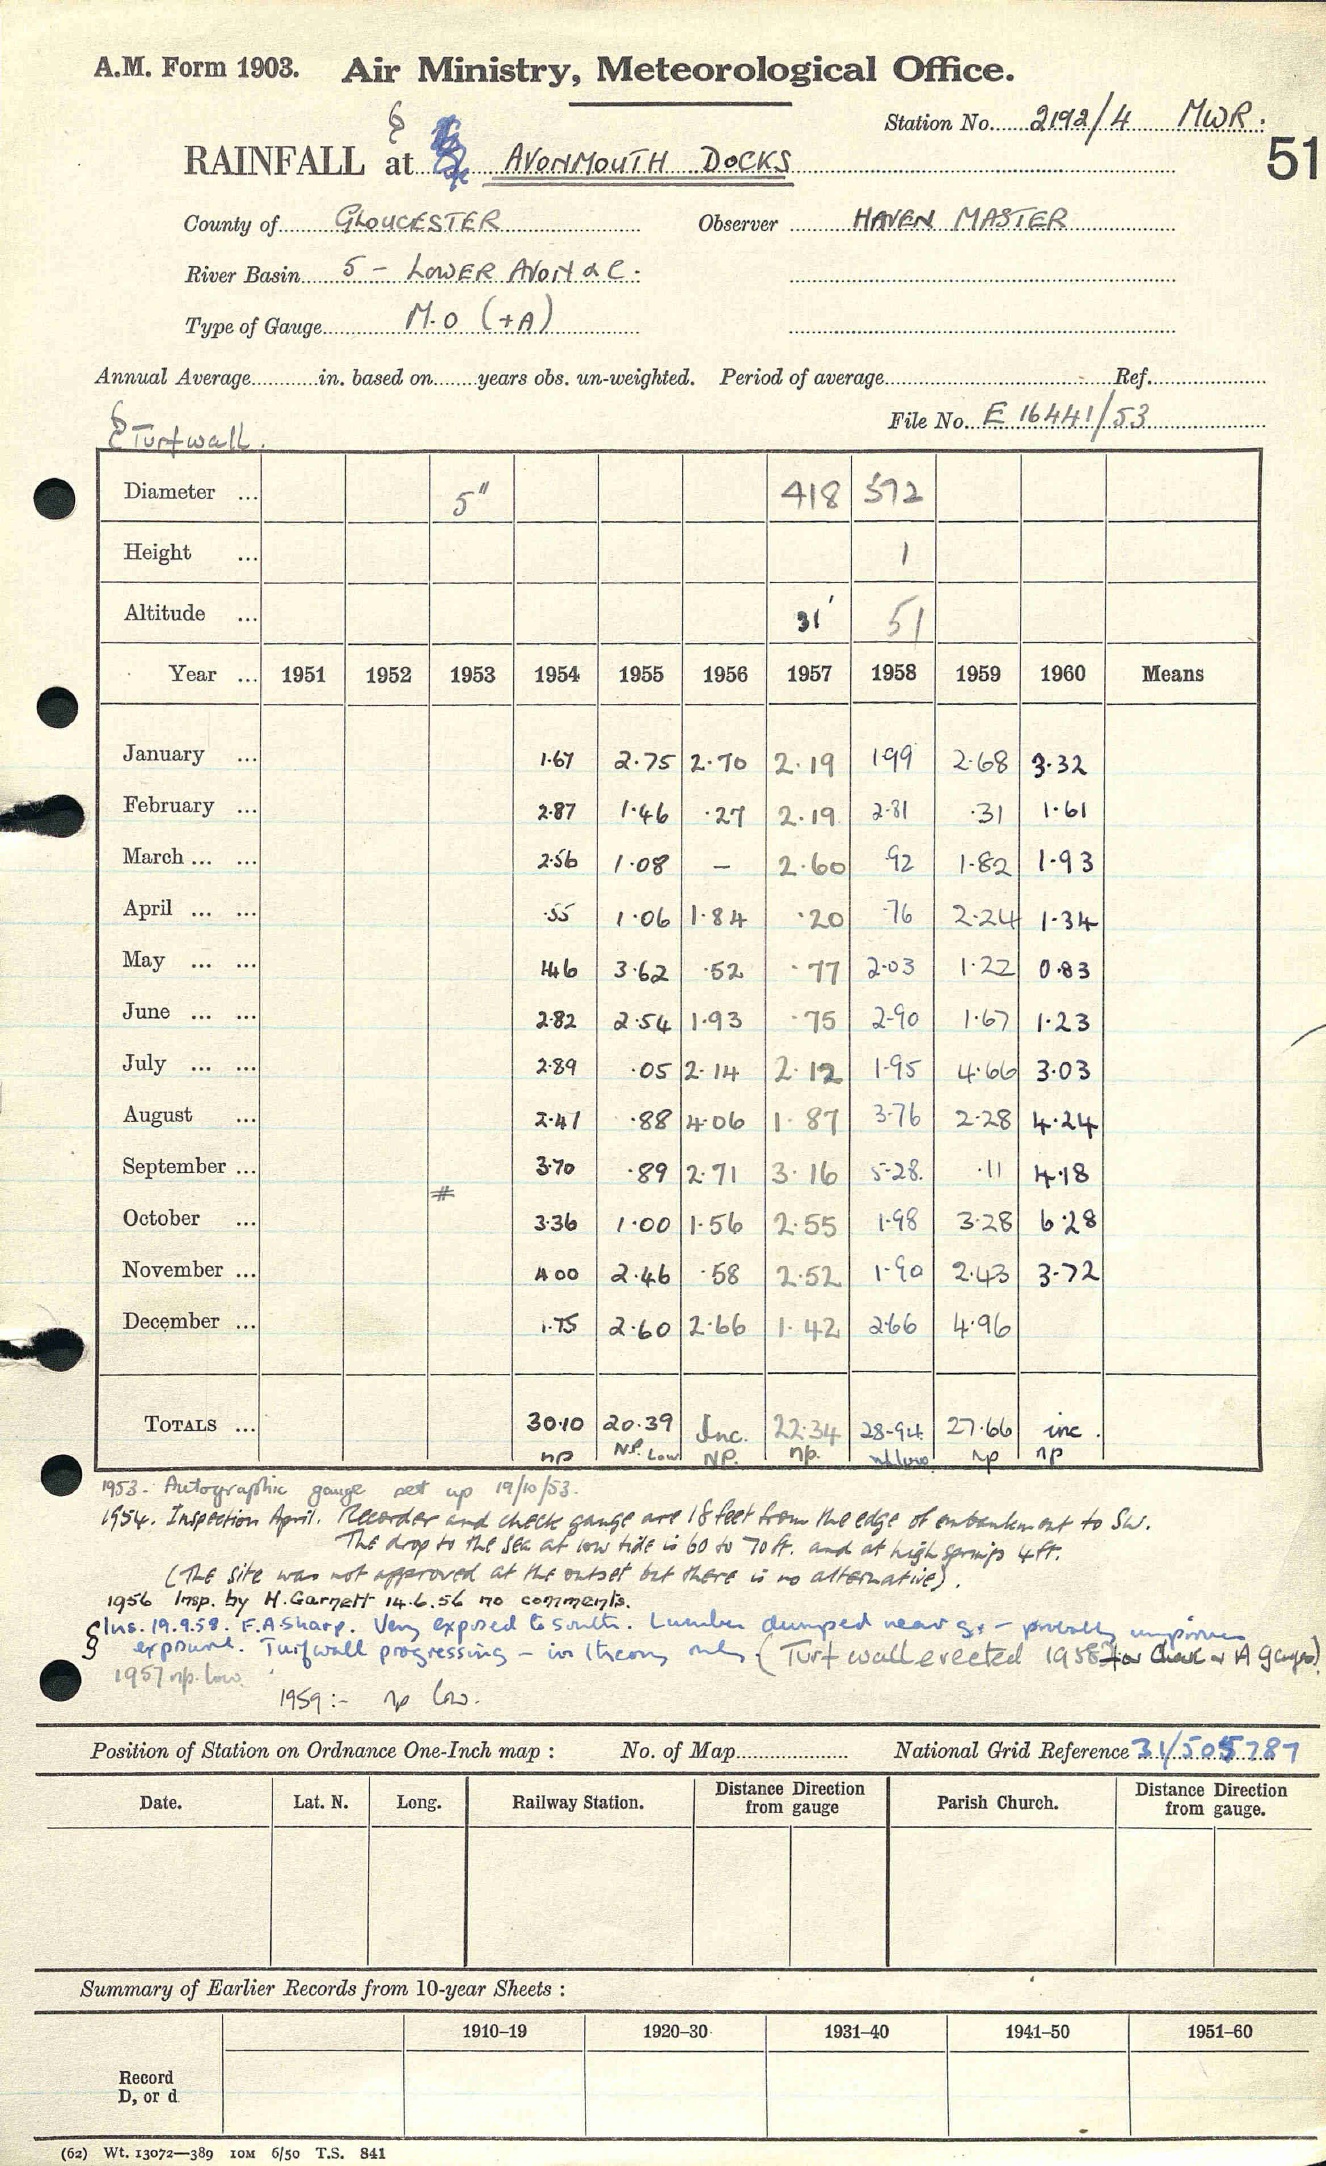 A.M. Form 1903. Air Ministry, Meteorological Office.
Station No. 2192/4 MWR.
51
RAINFALL at AVONMOUTH DOCKS
County of GLOUCESTER Observer HAVEN MASTER
River Basin 5 - LOWER AVON &C.
Type of Gauge M.O (+A)
Annual Average in. based on years obs. un-weighted. Period of average Ref.
File No. E 16441/53
§ Turf wall.
Diameter ... 5" 418 572
Height ... 1
Altitude ... 31' 51
Year ... 1951 1952 1953 1954 1955 1956 1957 1958 1959 1960 Means
January ... 1.67 2.75 2.70 2.19 1.99 2.68 3.32
February ... 2.87 1.46 .27 2.19 2.81 .31 1.61
March ... ... 2.56 1.08 - 2.60 .92 1.82 1.93
April ... ... .55 1.06 1.84 .20 .76 2.24 1.34
May ... ... 1.46 3.62 .52 .77 2.03 1.22 0.83
June ... ... 2.82 2.54 1.93 .75 2.90 1.67 1.23
July ... ... 2.89 .05 2.14 2.12 1.95 4.66 3.03
August ... 2.41 .88 4.06 1.87 3.76 2.28 4.24
September ... 3.70 .89 2.71 3.16 5.28. .11 4.18
#
October ... 3.36 1.00 1.56 2.55 1.98 3.28 6.28
November ... 4.00 2.46 .58 2.52 1.90 2.43 3.72
December ... 1.75 2.60 2.66 1.42 2.66 4.96
TOTALS ... 30.10 20.39 Inc. 22.34 28.94 27.66 inc.
np NP. Low NP. np. low np np
1953 - Autographic gauge set up 19/10/53.
1954. Inspection April. Recorder and check gauge are 18 feet from the edge of embankment to SW.
The drop to the sea at low tide is 60 to 70 ft. and at high springs 4 ft.
(The site was not approved at the outset but there is no alternative).
1956 Insp. by H. Garnett 14.6.56 no comments.
§ Ins. 19.9.58. F.A. Sharp. Very exposed to south. Lumber dumped near g. - probably improves
exposure. Turfwall progressing - in theory only (Turf wall erected 1958 for Check & A gauges)
1957 np. low.
1959 :- np low.
Position of Station on Ordnance One-Inch map : No. of Map National Grid Reference 31/505787
Date. Lat. N. Long. Railway Station. Distance Direction from gauge Parish Church. Distance Direction from gauge.
Summary of Earlier Records from 10-year Sheets :
1910–19 1920–30 1931–40 1941–50 1951–60
Record
D, or d
(62) Wt. 13072—389 10M 6/50 T.S. 841